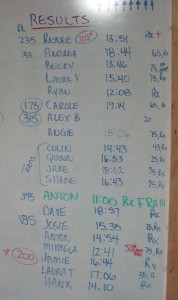 RESULTS
DL
235 RENEE 13:51 Rx
155 ANDREA 18:44 65,
BECKY 13:46 75,
LAURA V 15:40 75, Rx
RYAN 12:08 Rx
175 CAROLE 19:14 65,
315 ALEX B
ANGIE 18:06 75, Rx
COLIN 14:43
QUINN 16:53
JAKE 18:02
SHANE 16:43
395 ANTON 11:00 Rx FRAN
DAVE 18:57 Rx
185 JOSIE 15:35 75, Rx
ANTON 14:54 Rx
MIRAELA 12:41
*200 JAMIE 16:44 Rx
LAURA T 17:06
HANK 14:10 Rx